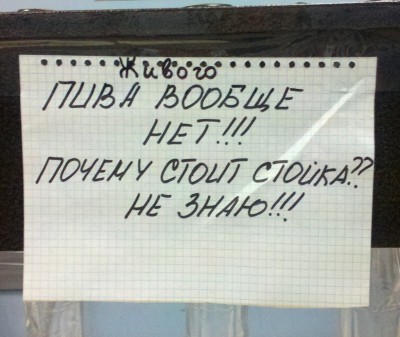 Живого
ПИВА ВООБЩЕ
НЕТ!!!
ПОЧЕМУ СТОИТ СТОЙКА??
НЕ ЗНАЮ!!!